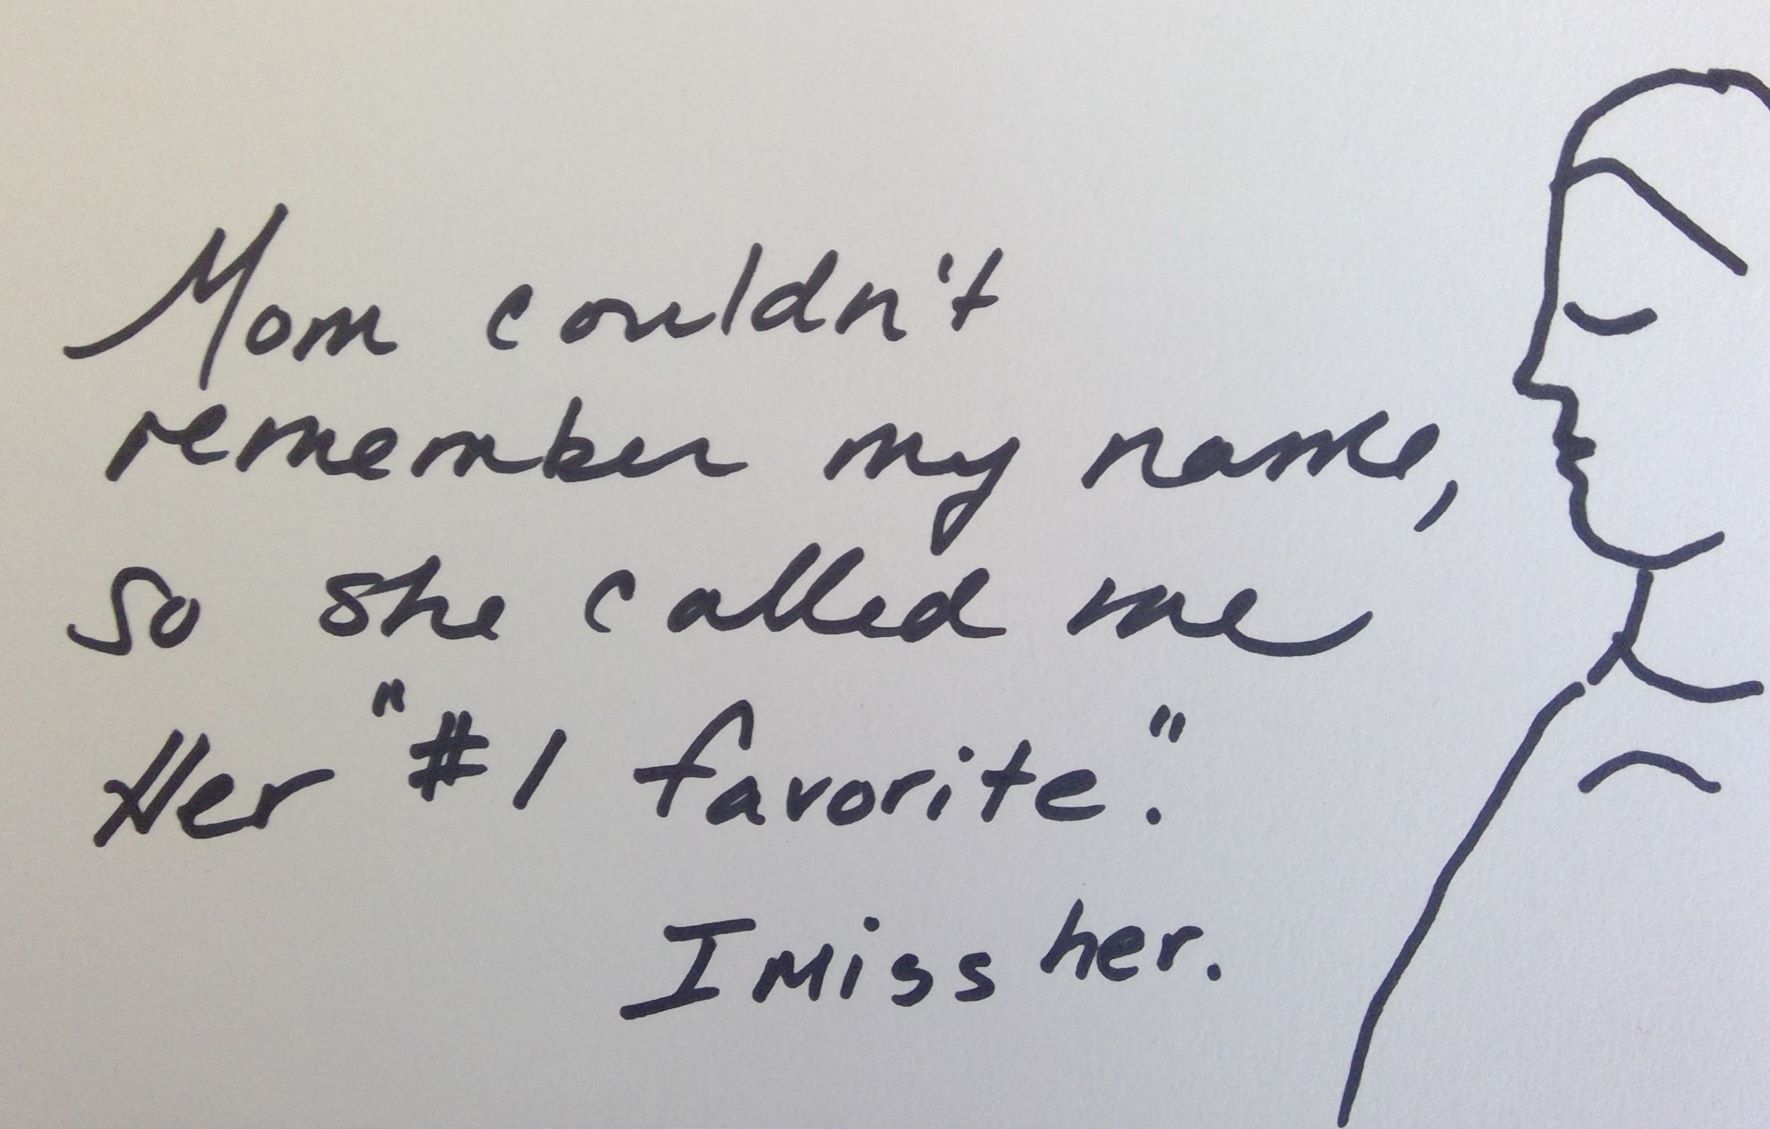 Mom couldn't
remember my name,
so she called me
Her "#1 favorite."
I miss her.